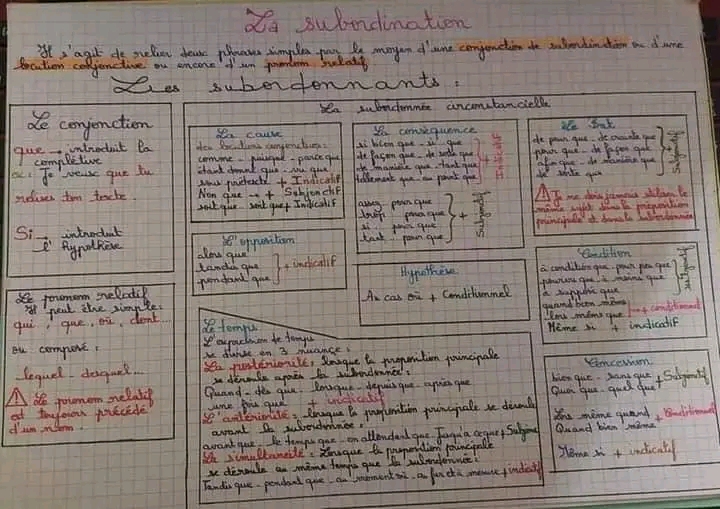 La subordination
Il s'agit de relier deux phrases simples par le moyen d'une conjonction de subordination ou d'une
locution conjonctive ou encore d'un pronom relatif
Les subordonnants :
Le conjonction
que → introduit la
complétive
ex: je veux que tu
relises ton texte.
Si → introduit
l'hypothèse
Le pronom relatif
Il peut être simple:
qui, que, où, dont...
ou composé:
lequel duquel...
⚠ Le pronom relatif
est toujours précédé
d'un nom.
La subordonnée circonstancielle
La cause
des locutions conjonctives:
comme - puisque - parce que
étant donné que - vu que
sous prétexte + Indicatif
Non que → + Subjonctif
soit que - soit que + Indicatif
L'opposition
alors que
tandis que
pendant que
+ indicatif
La conséquence
si bien que - si que
de façon que - de sorte que
de manière que - tant que
tellement que - au point que
+ Indicatif
assez - pour que
trop - pour que
si - pour que
tant - pour que
+ Subjonctif
Hypothèse
Au cas où + Conditionnel
Le but
de peur que - de crainte que
pour que - de façon que
afin que - de manière que
de sorte que
+ Subjonctif
⚠ Je ne dois jamais utiliser le
même sujet dans la préposition
principale et dans la subordonnée
Condition
à condition que - pour peu que
pourvu que - à moins que
à supposé que
+ subjonctif
quand bien même
lors même que
→ + conditionnel
Même si + indicatif
Le temps
L'expression de temps
se divise en 3 nuance:
La postériorité: lorsque la preposition principale
se déroule après la subordonnée:
Quand - dès que - lorsque - depuis que - après que
une fois que + indicatif
L'antériorité: lorsque la préposition principale se déroule
avant la subordonnée:
avant que - le temps que - en attendant que - Jusqu'à ce que + Subjonc
La simultanéité: Lorsque la preposition principale
se déroule au même temps que la subordonnée:
Tandis que - pendant que - au moment où - au fur et à mesure + indicatif
Concession
bien que - sans que
Quoi que - quel que
+ Subjonctif
Lors même quand
Quand bien même
+ Conditionnel
Même si + indicatif